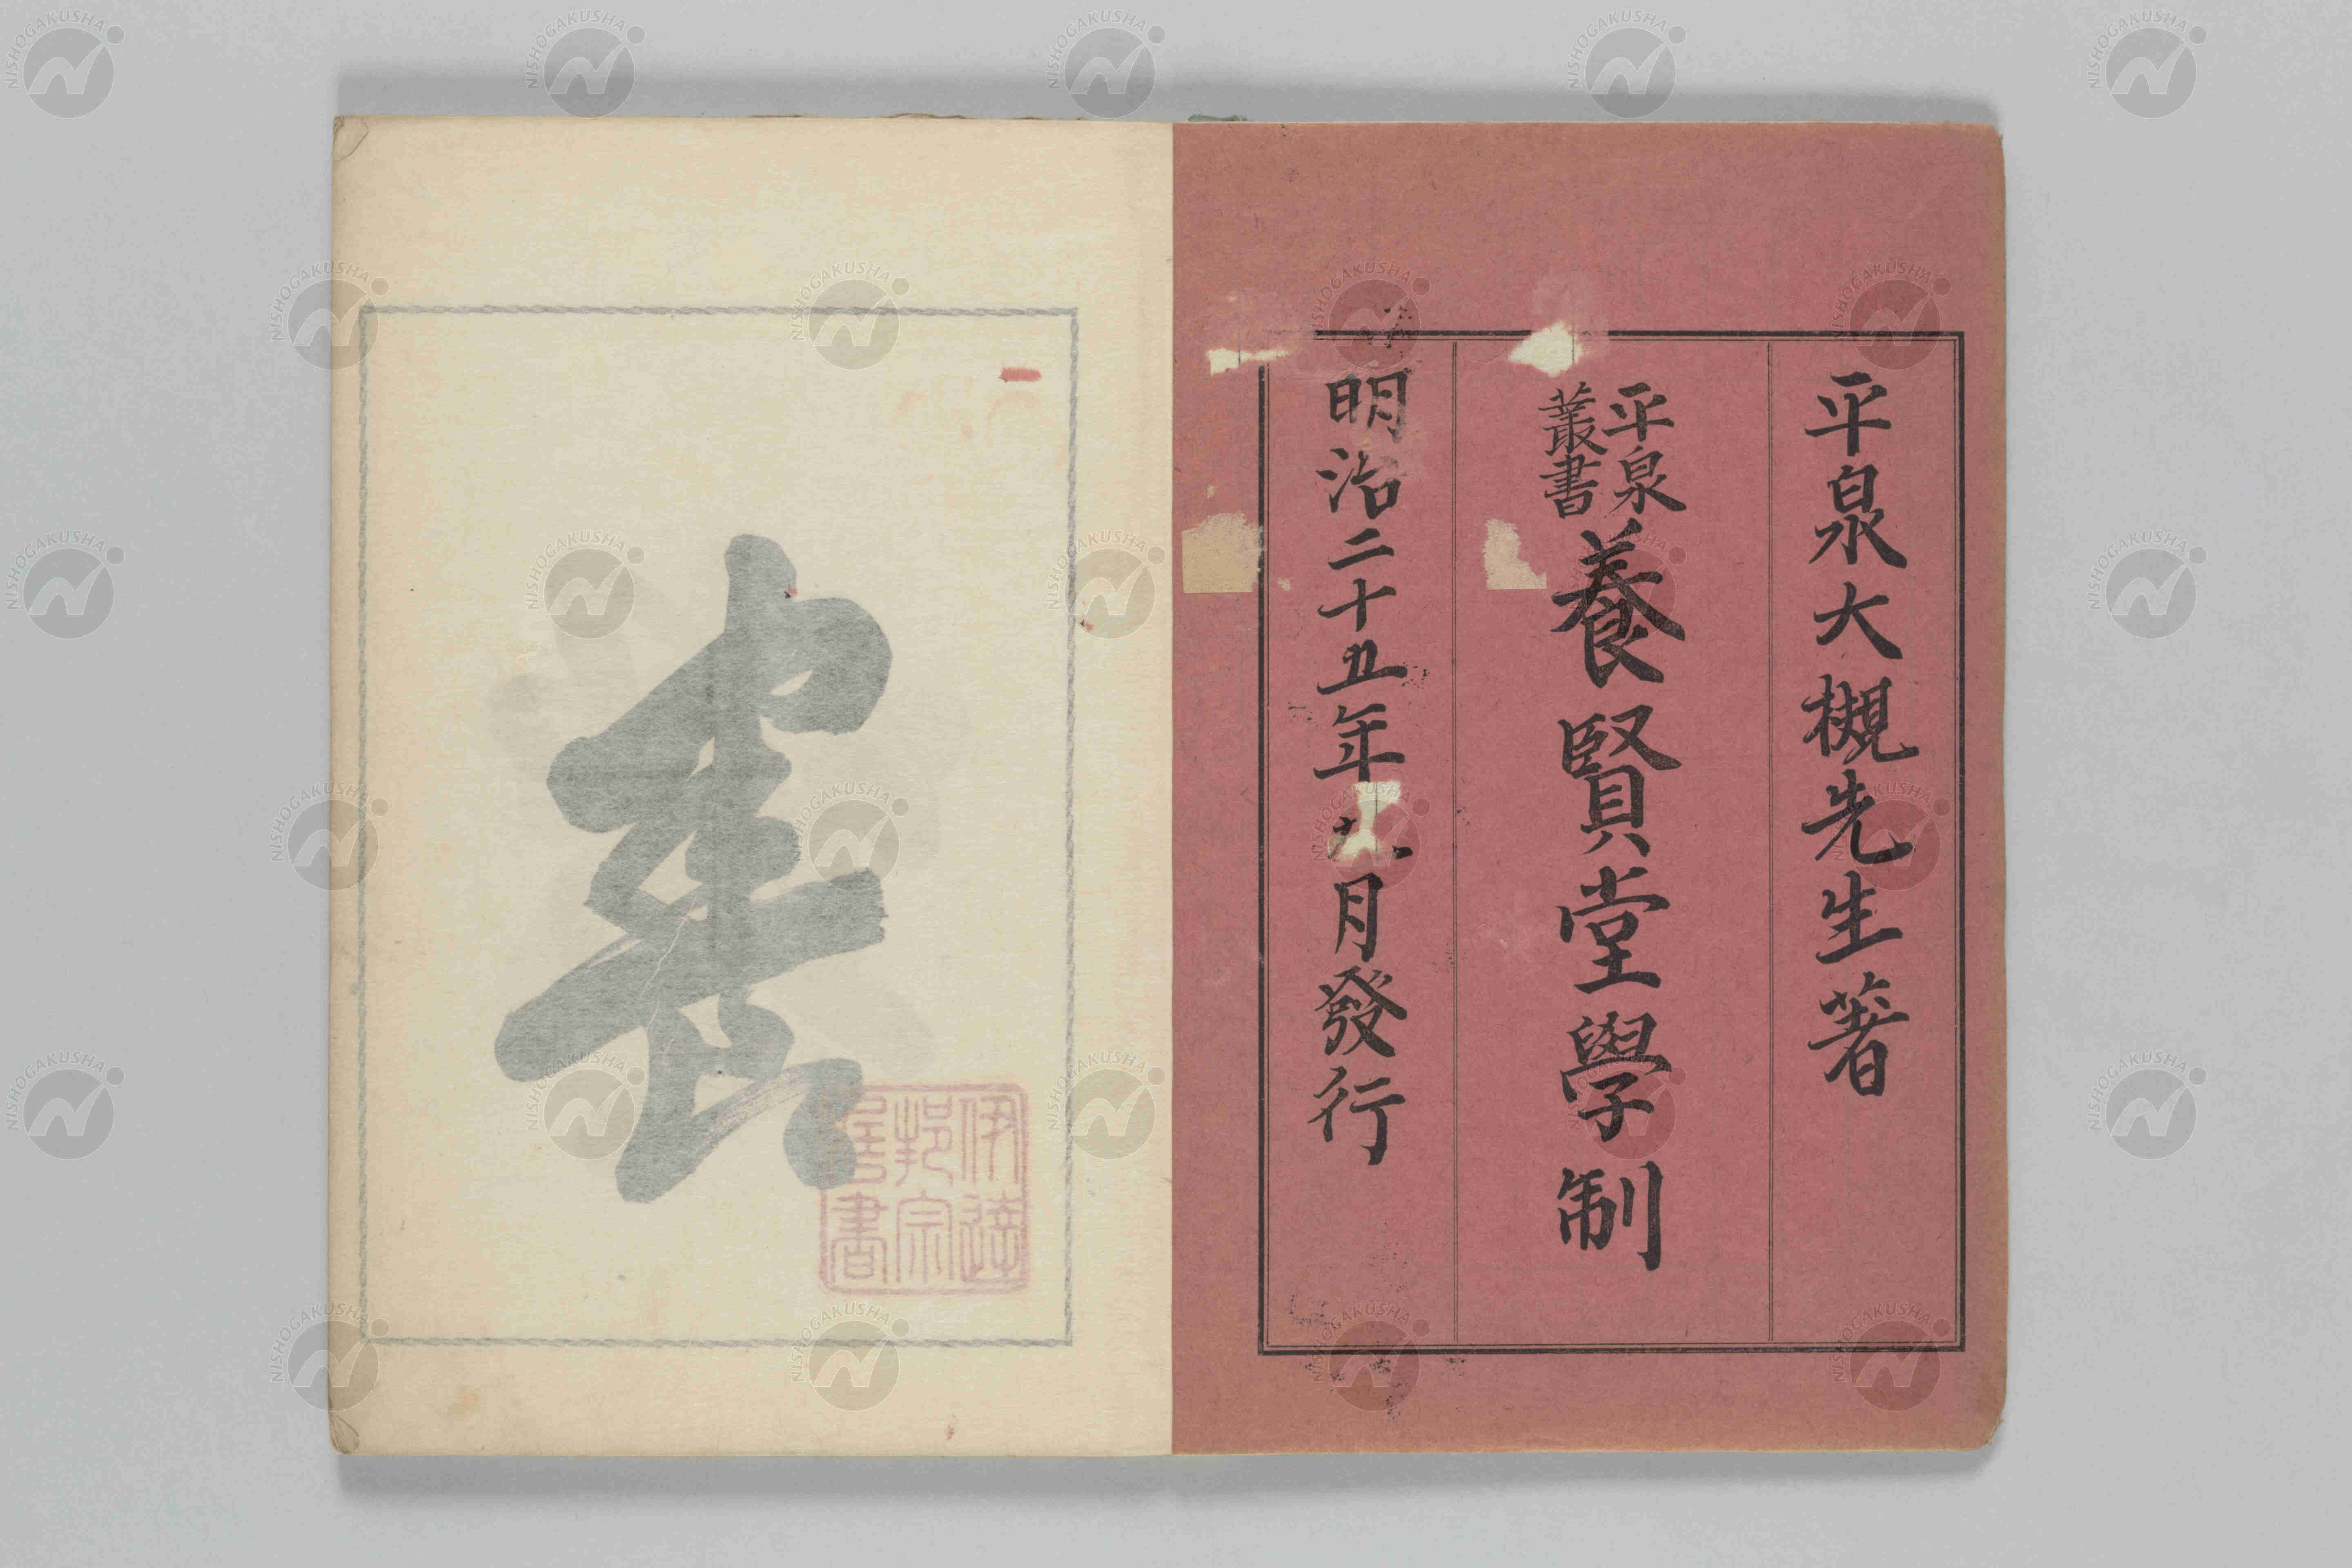 平泉大槻先生著
平泉叢書
養賢堂學制
明治二十五年
月發行
伊達
邦宗
書
NISHOGAKUSHA